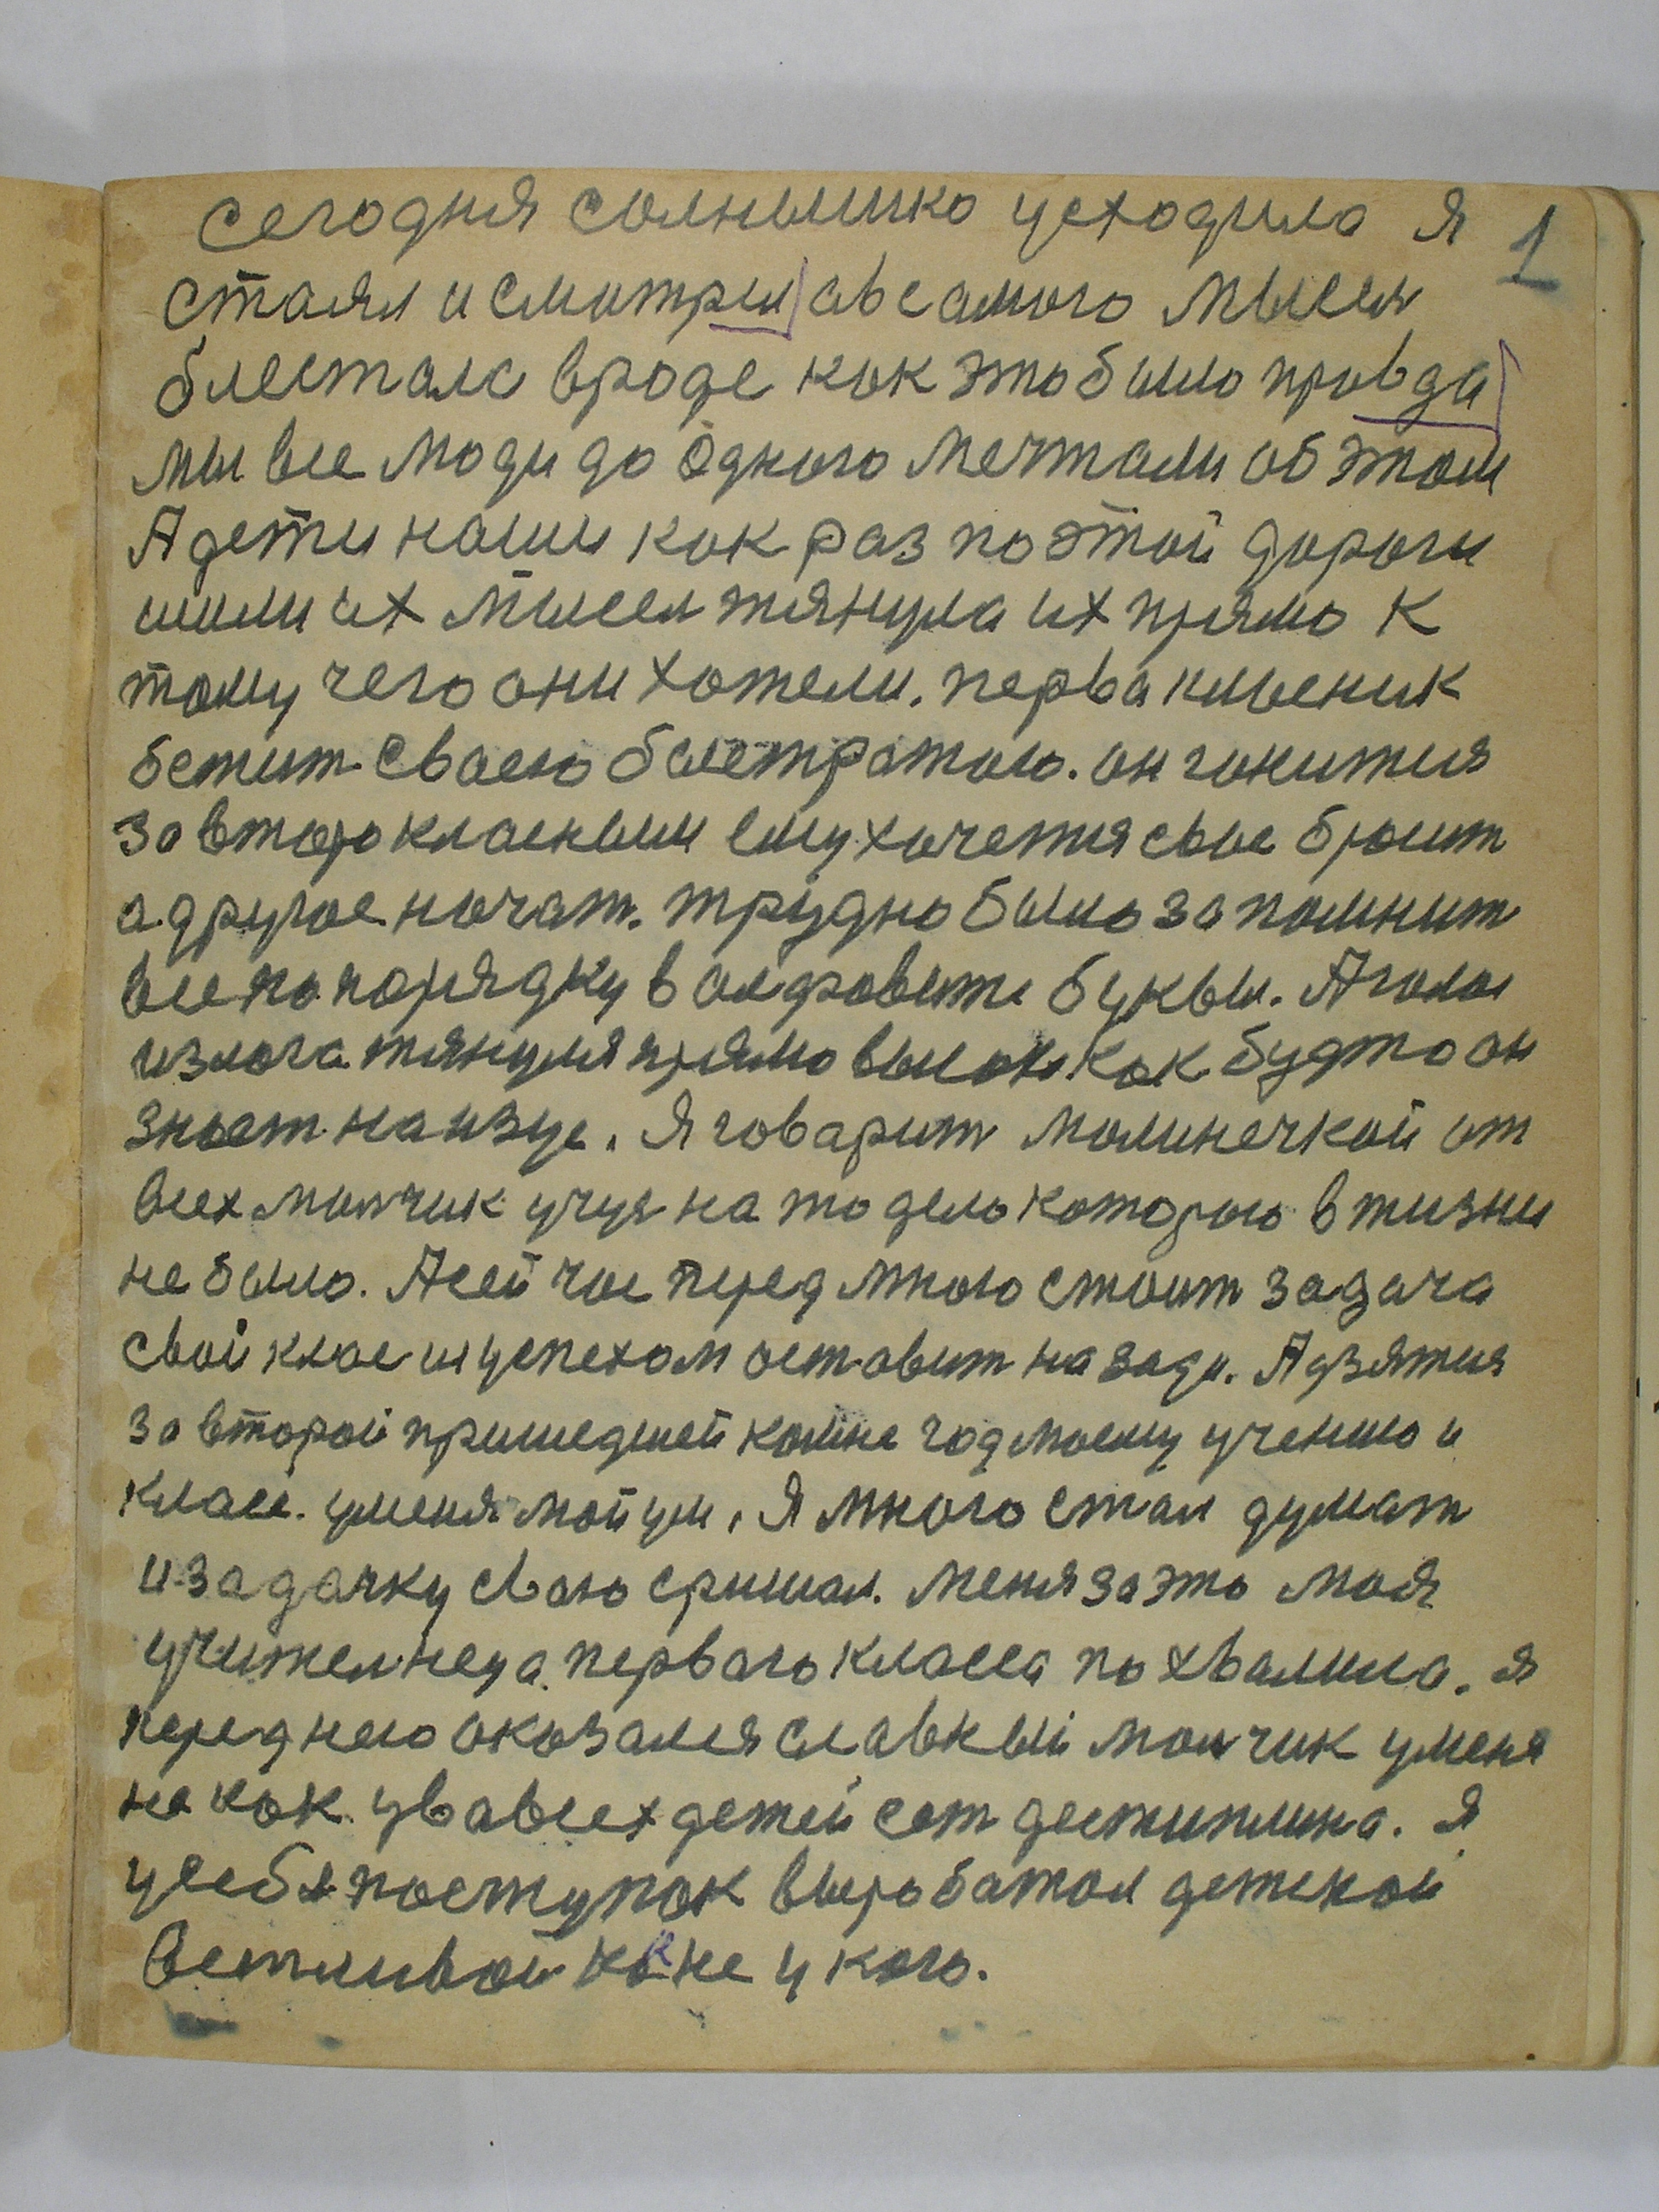 сегодня солнышко усходила я 1
стаял и смотрил авсамого мысля
блесталс вроде как это было правда
мы все люди до одного мечтали об этом
А дети наши как раз по этой дороги
шли их мысел тянула их прямо к
тому чего они хотели. перваклысник
бежит сваею быстратою. он гонится
за второкласным ему хочется свое брысит
а другое начат. трудно было запомнит
все по порядку в алфовите буквы. А голос
изльога тянулся прямо высоко как будто он
знает наизус. Я говарит малинечкой от
всех малчик учус на то дело которого в жизни
не было. А сейчас перед мною стоит задача
свой клас из успехом оставит на зади. А взятся
за второй пришедшей комне год моему учению и
класс. уменя мой ум. Я много стал думат
и задачку сваю сришал. меня за это моя
учителнеца первого класса похвалила. я
переднею оказался славный малчик уменя
не как увавсех детей ест дестиплина. Я
усебя поступок выробатал детской
вежливой как не у кого.